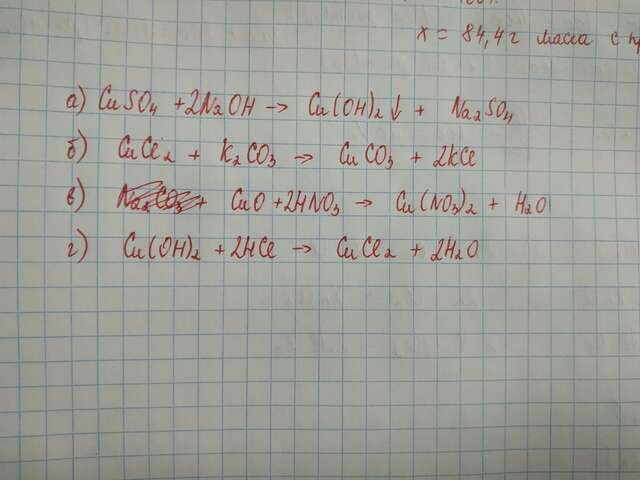 x = 84,4 г масса с
а) CuSO4 + 2NaOH → Cu(OH)2↓ + Na2SO4
б) CuCl2 + K2CO3 → CuCO3 + 2KCl
в) Na2CO3 + CuO + 2HNO3 → Cu(NO3)2 + H2O
г) Cu(OH)2 + 2HCl → CuCl2 + 2H2O